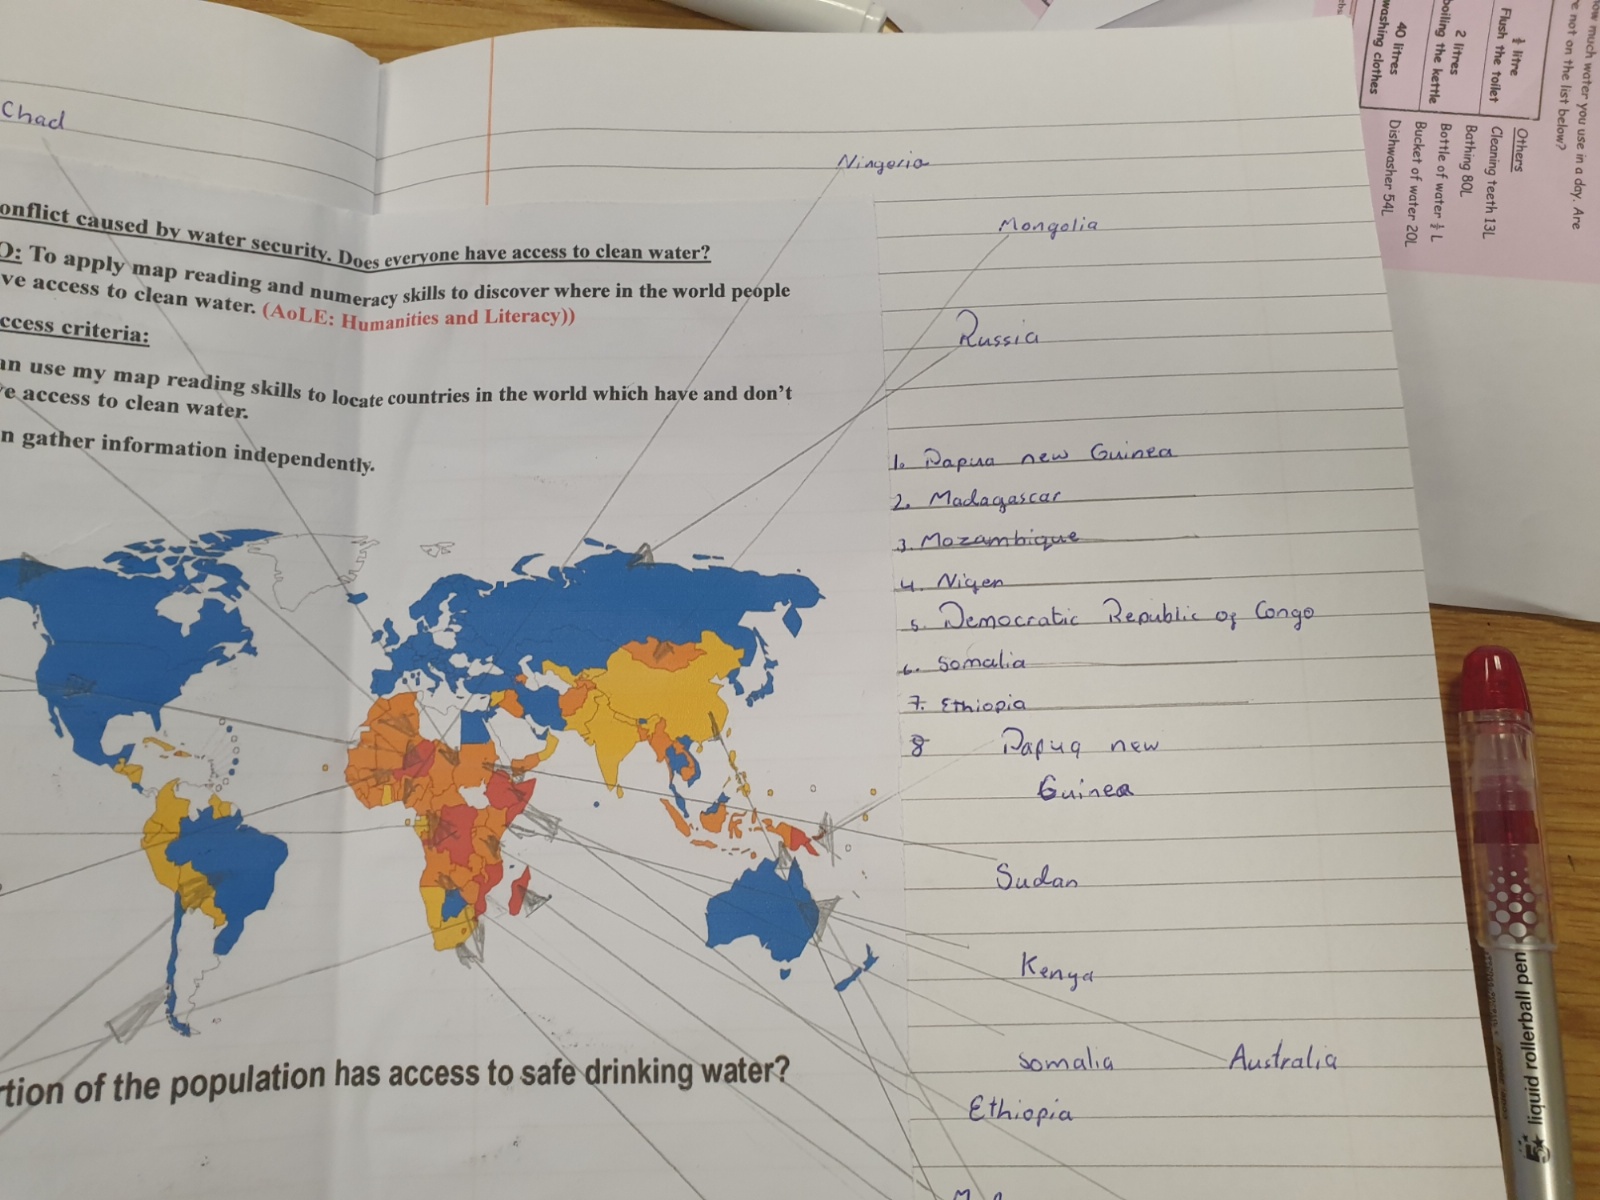 Chad
Ningeria
Mongolia
onflict caused by water security. Does everyone have access to clean water?
O: To apply map reading and numeracy skills to discover where in the world people
ve access to clean water. (AoLE: Humanities and Literacy))
ccess criteria:
an use my map reading skills to locate countries in the world which have and don't
e access to clean water.
n gather information independently.
Russia
1. Papua new Guinea
2. Madagascar
3. Mozambique
4. Niger
5. Democratic Republic of Congo
6. Somalia
7. Ethiopia
8 Papua new
Guinea
Sudan
Kenya
Somalia
Australia
Ethiopia
rtion of the population has access to safe drinking water?
ow much water you use in a day. Are
e not on the list below?
litre
Flush the toilet
2 litres
boiling the kettle
40 litres
washing clothes
Others
Cleaning teeth 13L
Bathing 80L
Bottle of water ½ L
Bucket of water 20L
Dishwasher 54L
5 liquid rollerball pen